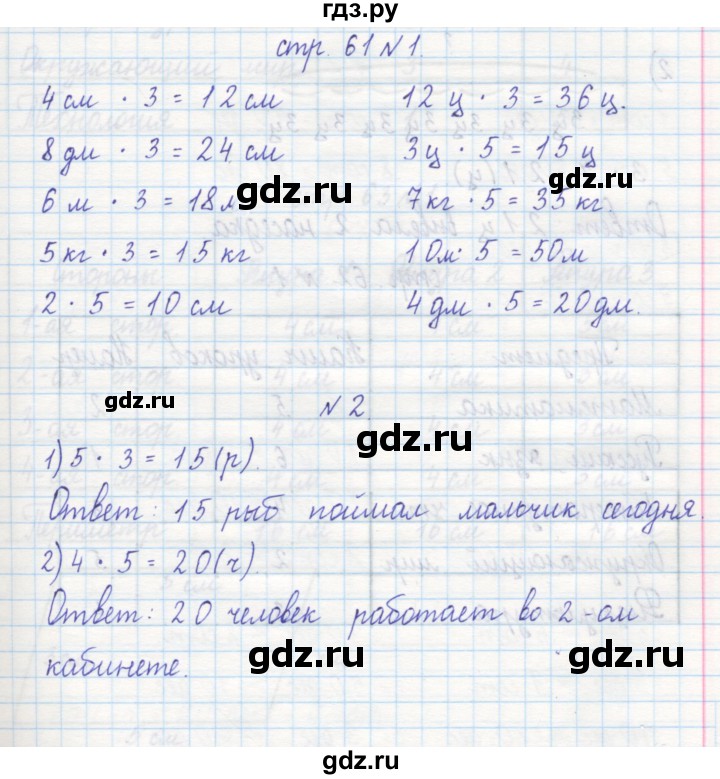 гдз.ру
стр. 61 №1.
4 см · 3 = 12 см
12 ц · 3 = 36 ц.
8 дм · 3 = 24 см
3ц · 5 = 15 ц
gdz.ru
6 м · 3 = 18м
7кг · 5 = 35 кг
gdz.ru
5кг · 3 = 15 кг
10м· 5 = 50м
2 · 5 = 10 см
4 дм · 5 = 20дм.
gdz.ru
№ 2.
gdz.ru
1) 5 · 3 = 15 (р).
Ответ: 15 рыб поймал мальчик сегодня.
gdz.ru
2) 4 · 5 = 20(ч).
Ответ: 20 человек работает во 2-ом
кабинете.
gdz.ru
gdz.ru
gdz.ru